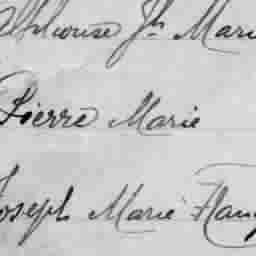 Alphonse Jh Mari
Pierre Marie
Joseph Marie